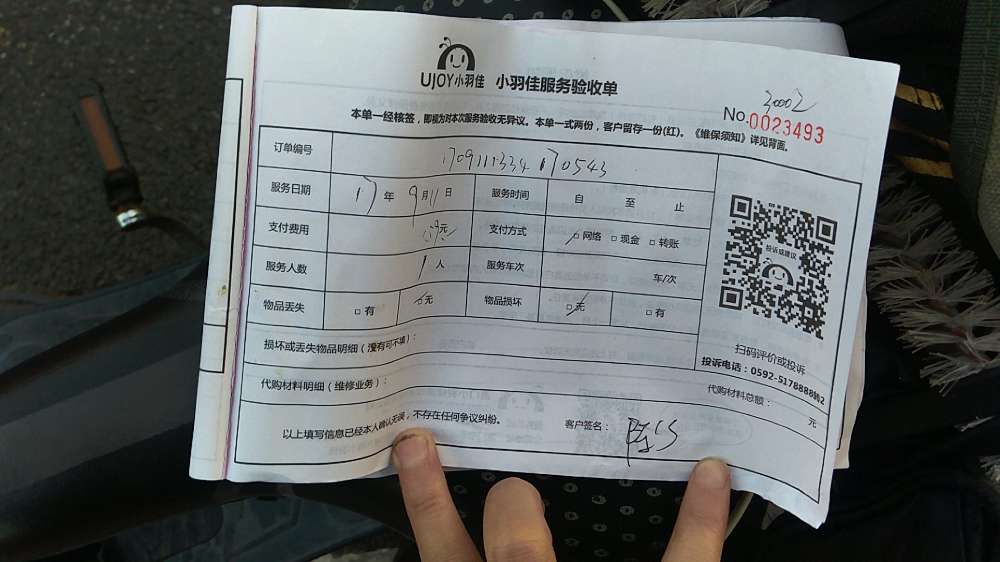 UJOY小羽佳 小羽佳服务验收单
30002
No.0023493
本单一经核签，即视为对本次服务验收无异议。本单一式两份，客户留存一份(红)。《维保须知》详见背面。
订单编号 1709111334170543
服务日期 17年 9月11日 服务时间 自 至 止
支付费用 元 支付方式 □网络 □现金 □转账
服务人数 1人 服务车次 车/次
物品丢失 □有 □无 物品损坏 □无 □有
投诉或建议
扫码评价或投诉
投诉电话：0592-5178888转2
损坏或丢失物品明细（没有可不填）：
代购材料明细（维修业务）： 代购材料总额： 元
以上填写信息已经本人确认无误，不存在任何争议纠纷。 客户签名：